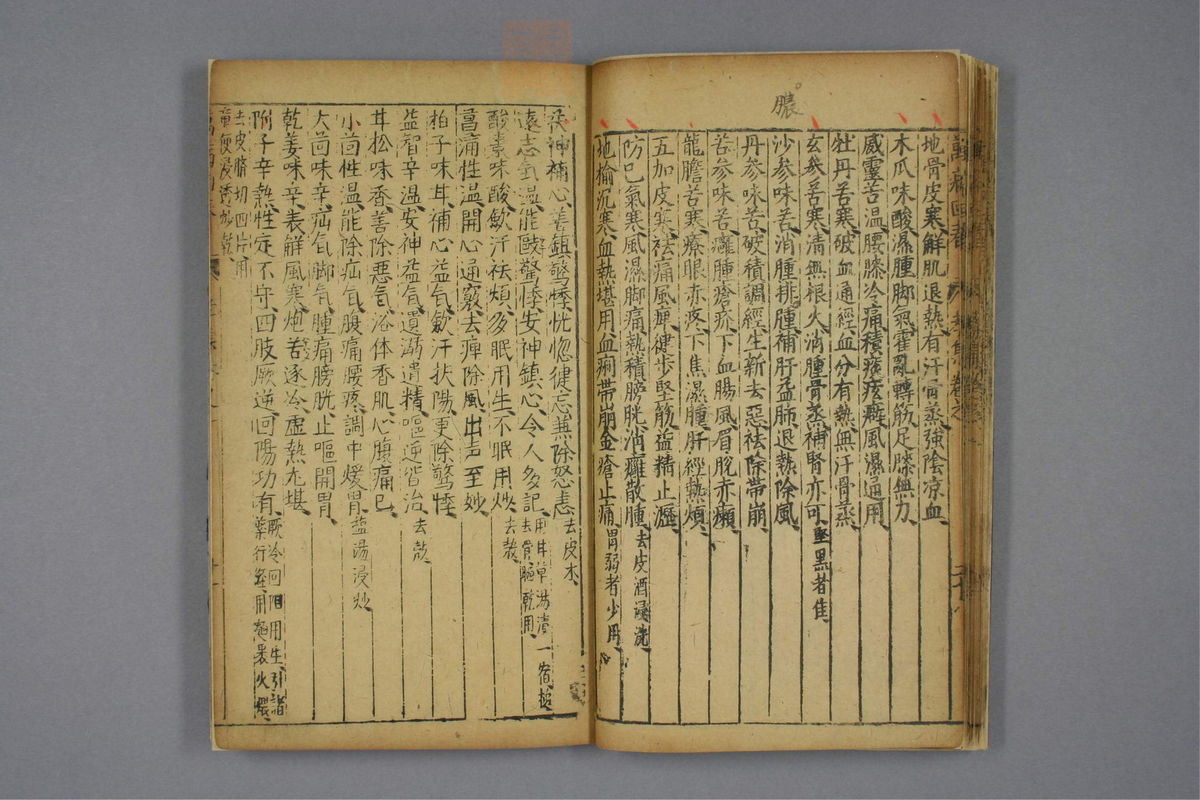 膿
地骨皮寒解肌退熱有汗骨蒸強陰凉血
木瓜味酸濕腫脚氣霍亂轉筋足膝無力
威靈苦温腰膝冷痛積痰痃癖風濕通用
牡丹苦寒破血通經血分有熱無汗骨蒸
玄參苦寒清無根火消腫骨蒸補腎亦可堅黑者佳
沙參味苦消腫排膿補肝益肺退熱除風
丹參味苦破積調經生新去惡祛除帶崩
苦參味苦癰腫瘡疥下血腸風眉脫赤癩
龍膽苦寒療眼赤疼下焦濕腫肝經熱煩
五加皮寒祛痛風痺健步堅筋益精止瀝
防己氣寒風濕脚痛熱積膀胱消癰散腫去皮酒浸洗
地榆沉寒血熱堪用血痢帶崩金瘡止痛胃弱者少用
茯神補心善鎮驚悸恍惚健忘兼除怒恚去皮木
遠志氣温能毆驚悸安神鎮心令人多記用甘草湯漬一宿
去骨晒乾用
酸棗味酸歛汗祛煩多眠用生不眠用炒去殼
菖蒲性温開心通竅去痺除風出声至妙
柏子味甘補心益氣歛汗扶陽更除驚悸
益智辛温安神益氣遺溺遺精嘔逆皆治去殼
甘松味香善除惡氣浴体香肌心腹痛已
小茴性温能除疝氣腹痛腰疼調中煖胃盐湯浸炒
大茴味辛疝氣脚氣腫痛膀胱止嘔開胃
乾姜味辛表解風寒炮苦逐冷虚熱尤堪
附子辛熱性走不守四肢厥逆回陽功有
厥冷回陽用生引諸
藥行經用麵裹火煨
去皮臍切四片用
童便浸透